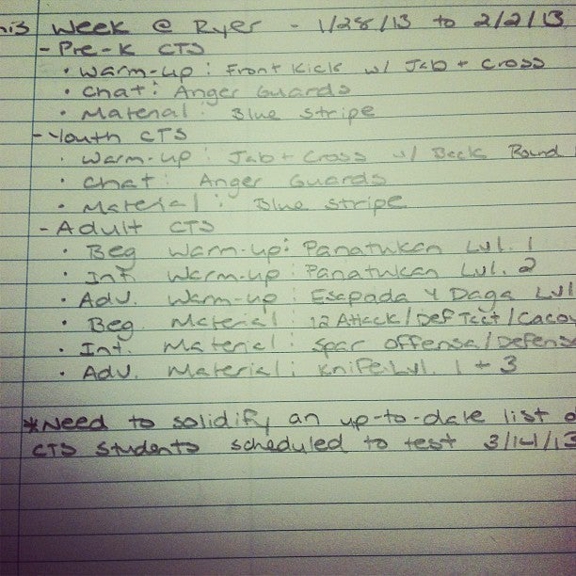 his Week @ Ryer - 1/28/13 to 2/2/13
- Pre-K CTS
• Warm-up: Front Kick w/ Jab + Cross
• Chat: Anger Guards
• Material: Blue Stripe
- Youth CTS
• Warm-up: Jab + Cross w/ Back Round
• Chat: Anger Guards
• Material: Blue Stripe
- Adult CTS
• Beg Warm-up: Panatukan Lvl. 1
• Int. Warm-up: Panatukan Lvl. 2
• Adv. Warm-up: Espada Y Daga Lvl
• Beg. Material: 12 Attack/Def Tact/Cacoy
• Int. Material: Spar Offense/Defense
• Adv. Material: Knife Lvl. 1 + 3
*Need to solidify an up-to-date list o
CTS students scheduled to test 3/14/13